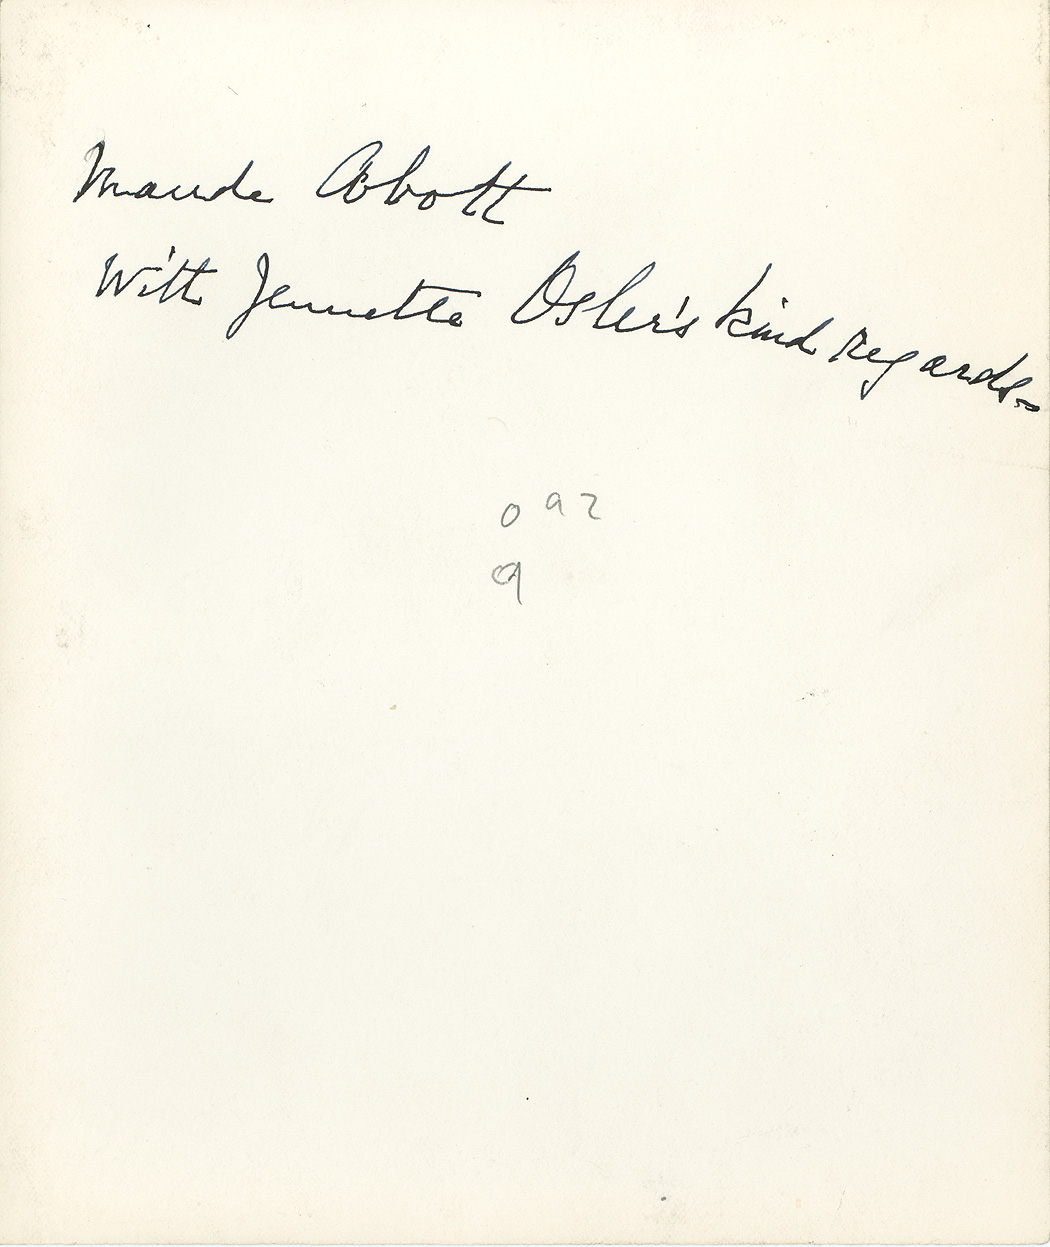 Maude Abbott
With Jennette Osler's kind regards–
0 9 2
9